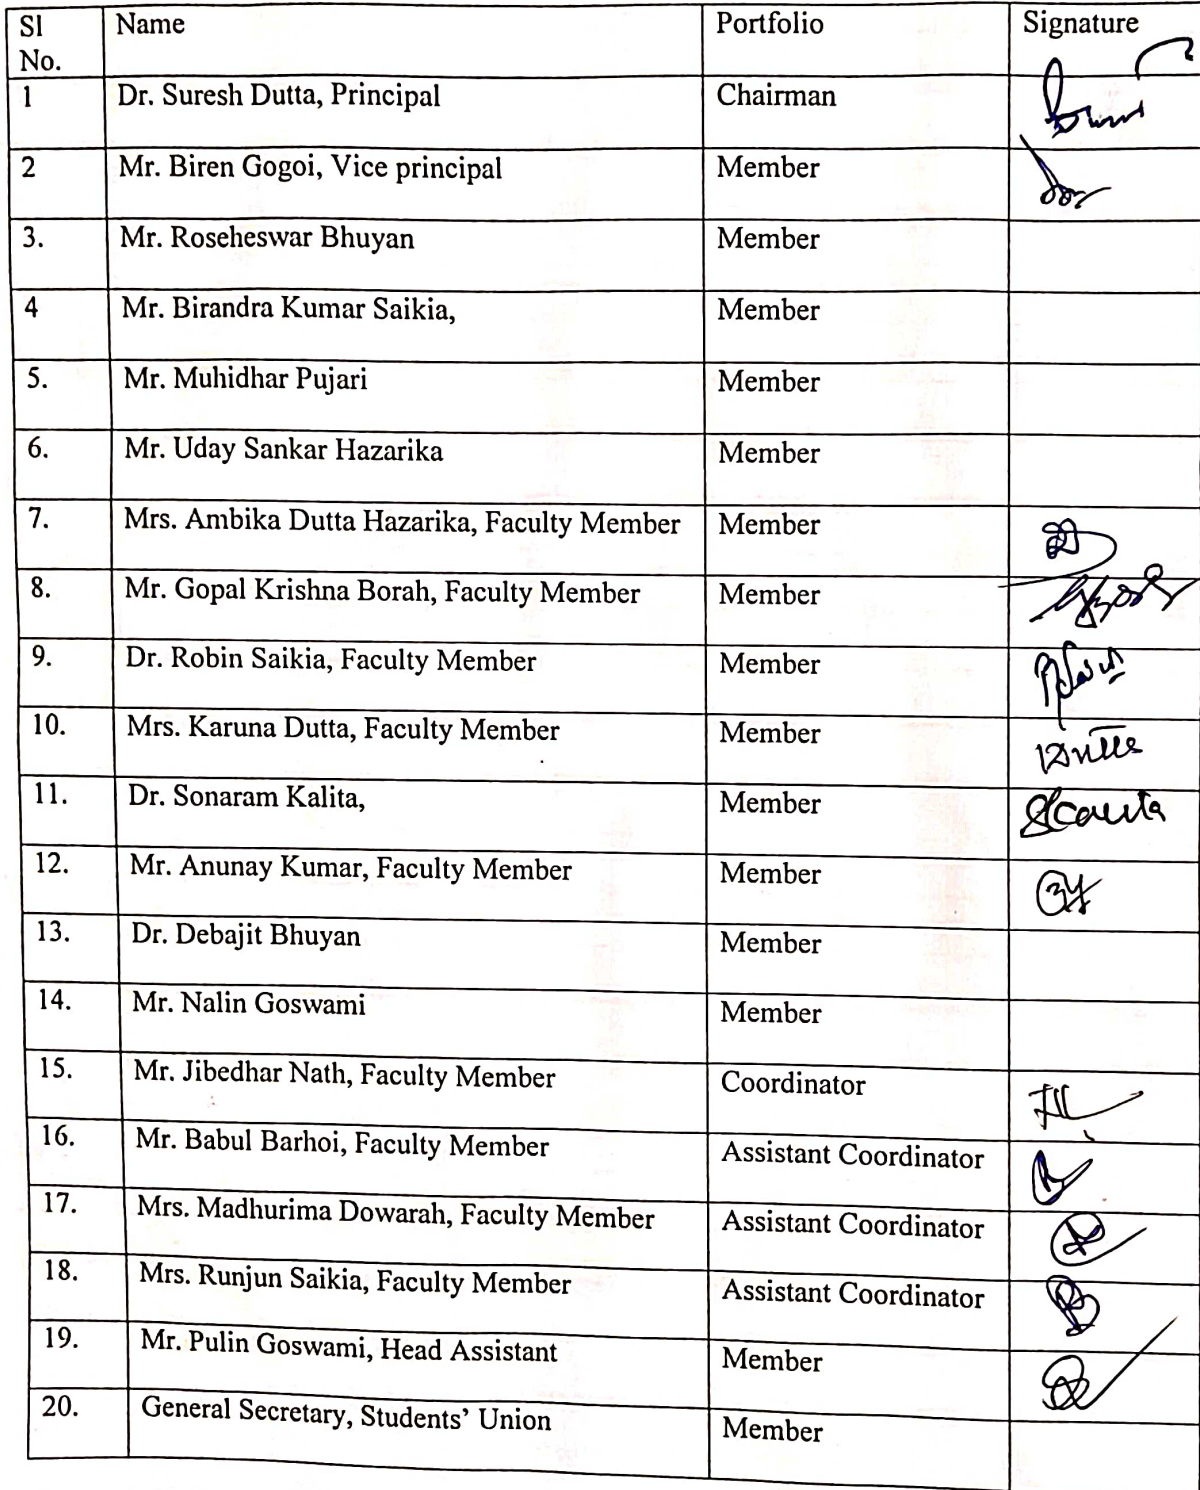 Sl No. Name Portfolio Signature
1 Dr. Suresh Dutta, Principal Chairman
2 Mr. Biren Gogoi, Vice principal Member
3. Mr. Roseheswar Bhuyan Member
4 Mr. Birandra Kumar Saikia, Member
5. Mr. Muhidhar Pujari Member
6. Mr. Uday Sankar Hazarika Member
7. Mrs. Ambika Dutta Hazarika, Faculty Member Member
8. Mr. Gopal Krishna Borah, Faculty Member Member
9. Dr. Robin Saikia, Faculty Member Member
10. Mrs. Karuna Dutta, Faculty Member Member
11. Dr. Sonaram Kalita, Member
12. Mr. Anunay Kumar, Faculty Member Member
13. Dr. Debajit Bhuyan Member
14. Mr. Nalin Goswami Member
15. Mr. Jibedhar Nath, Faculty Member Coordinator
16. Mr. Babul Barhoi, Faculty Member Assistant Coordinator
17. Mrs. Madhurima Dowarah, Faculty Member Assistant Coordinator
18. Mrs. Runjun Saikia, Faculty Member Assistant Coordinator
19. Mr. Pulin Goswami, Head Assistant Member
20. General Secretary, Students' Union Member